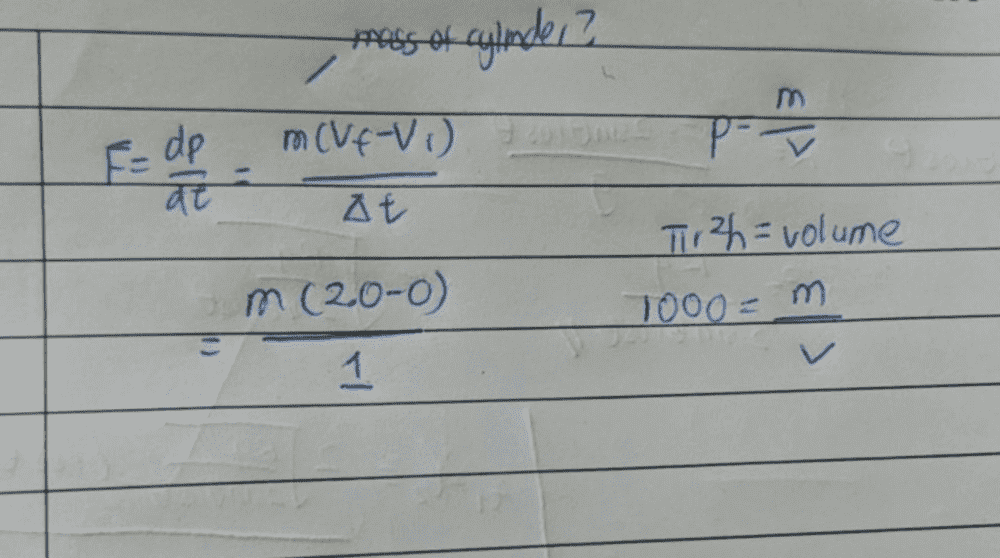 mass of cylinder?
F = dp/dt = m(Vf - Vi)/Δt
= m(20-0)/1
p = m/v
πr²h = volume
1000 = m/v